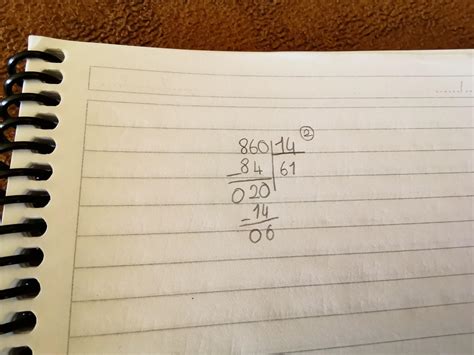 860 14 ②
- 84 61
020
- 14
06